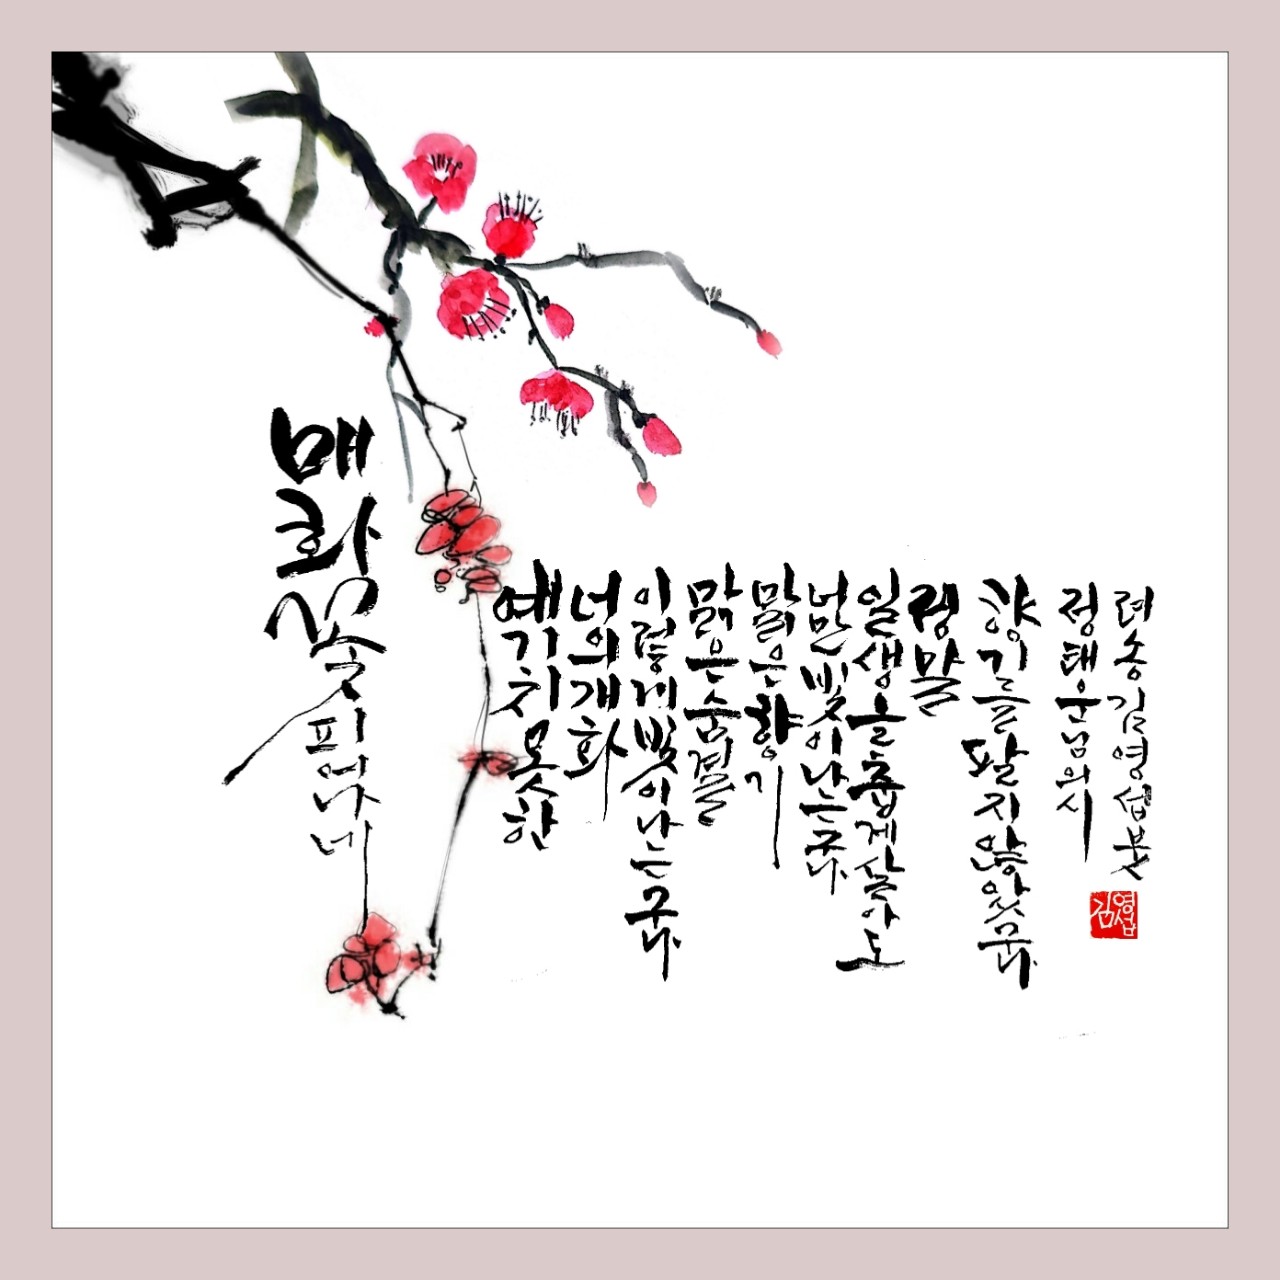 매화꽃 피어나네
예기치 못한
너의 개화
이렇게 빛이 나는구나
맑은 숨결
맑은 향기
너만 빛이 나는구나
일생을 춥게 살아도
정말
향기를 팔지 않았구나
정태운님의 시
려송 김영섭 붓
김영섭